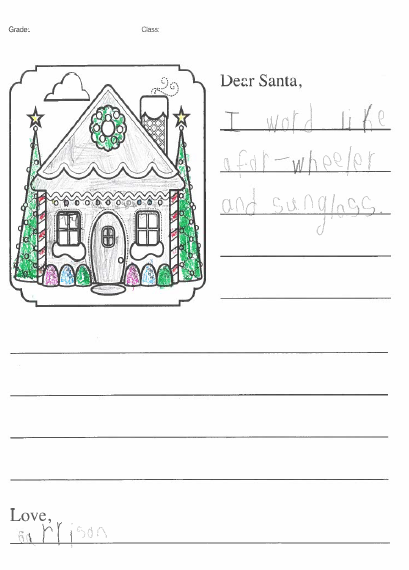 Grade:
Class:
Dear Santa,
I word like
a for-wheeler
and sunglass.
Love,